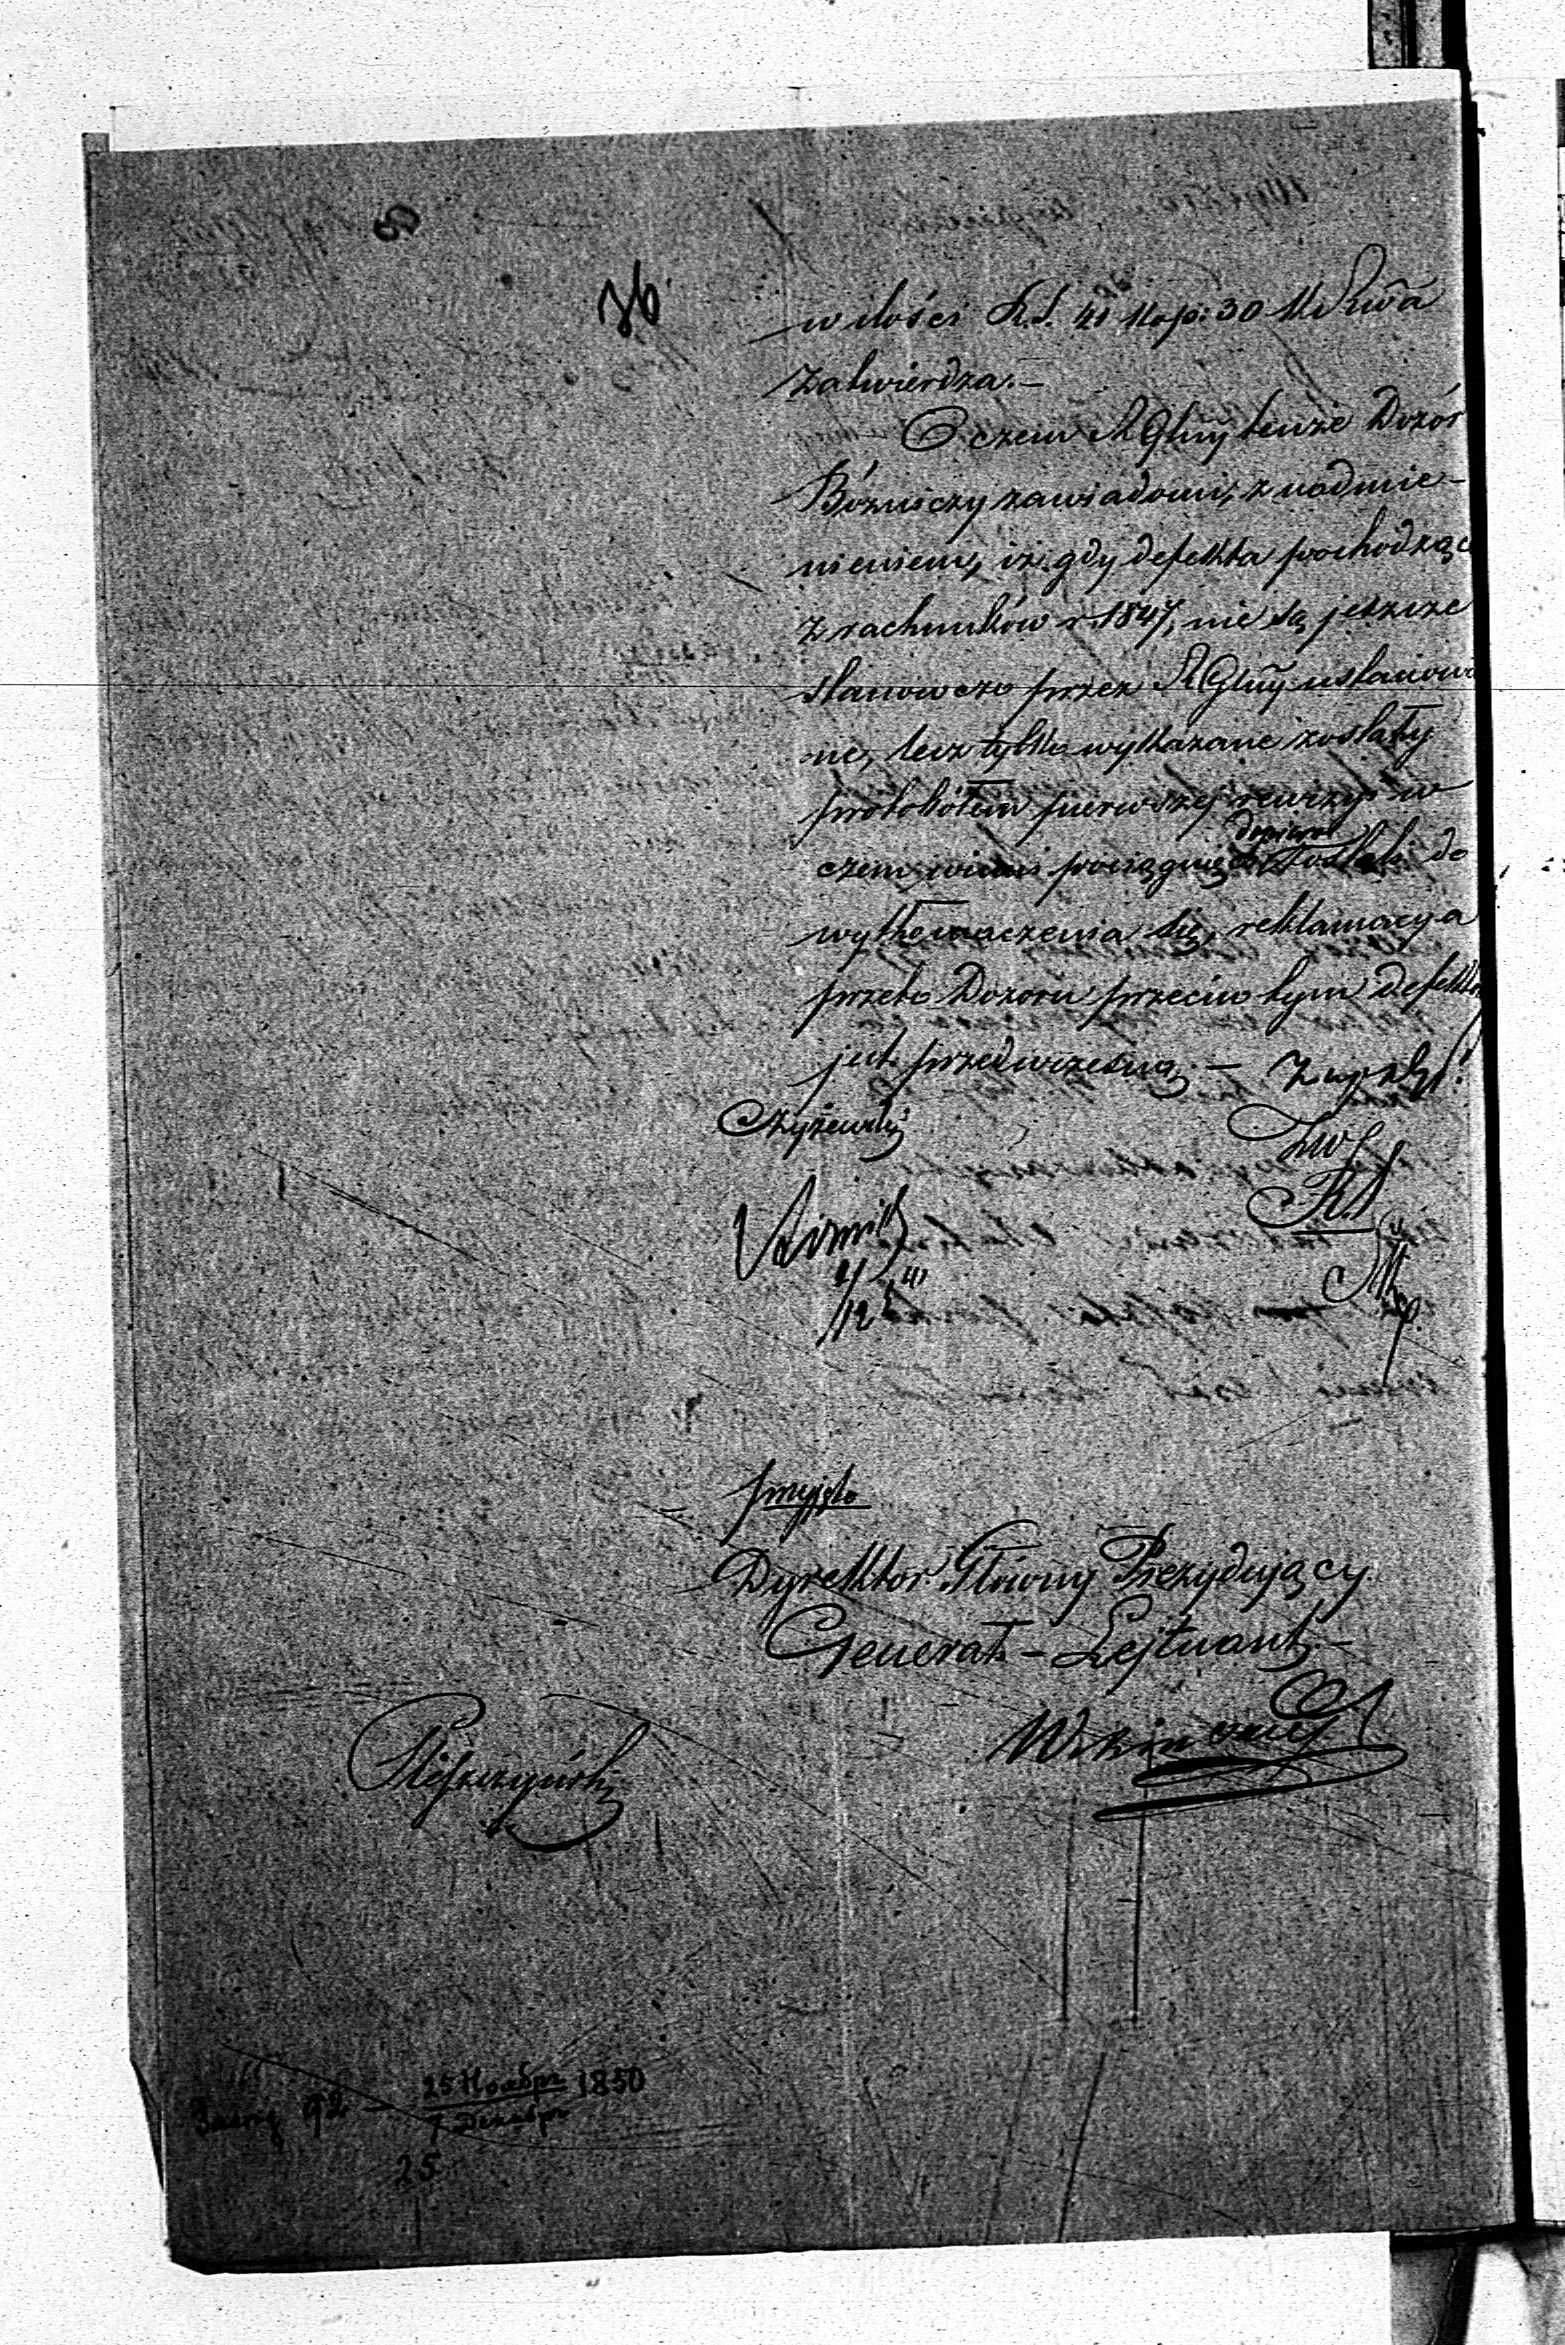 36
w ilości R.S. 41 kop: 30 K Rwa
zatwierdza.–
O czem R Głny tenże Dozór
Bóżniczy zawiadomi, z nadmie-
nieniem, iż gdy defekta pochodzące
z rachunków r. 1847, nie są jeszcze
stanowczo przez R Głny ustanowio
ne, lecz tylko wykazane zostały
protokółem pierwszej rewizyi w
czem winni pociągnięci dopiero zostali do
wytłomaczenia się, reklamacya
przeto Dozoru przeciw tym defektom
jest przedwczesną. –
Czyżewski
2/12
przyjęto
Dyrektor Główny Prezydujący
Generał – Lejtnant –
92 – 25 Ноября / 7 Декабря 1850
25